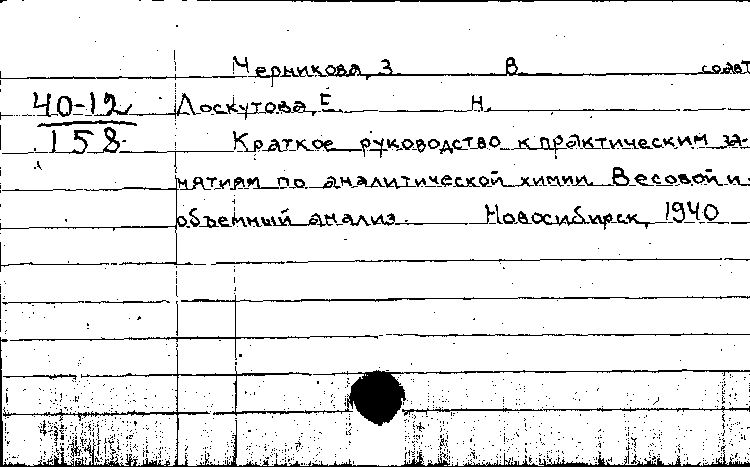 Черникова, З. В. соавт
40-12 Лоскутова, Е. Н.
158 Краткое руководство к практическим за-
нятиям по аналитической химии. Весовой и
объемный анализ. Новосибирск, 1940